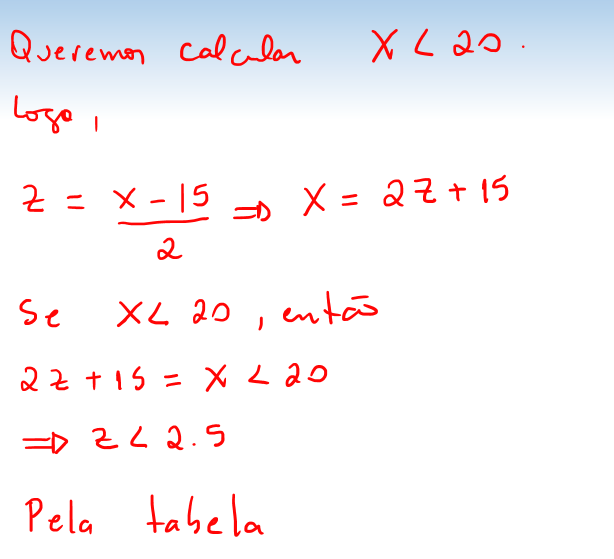 Queremos calcular X < 20.
Logo,
Z = (X - 15)/2 ⇒ X = 2Z + 15
Se X < 20, então
2Z + 15 = X < 20
⇒ Z < 2.5
Pela tabela